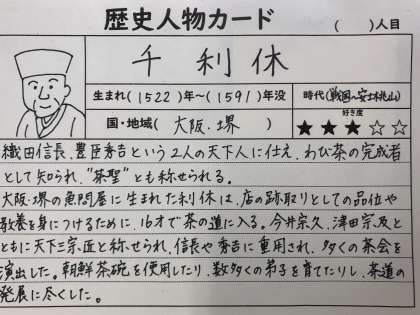 歴史人物カード
(　)人目
千利休
生まれ(1522)年〜(1591)年没
時代(戦国〜安土桃山)
国・地域(大阪・堺)
好き度
★★★☆☆
織田信長、豊臣秀吉という2人の天下人に仕え、わび茶の完成者
として知られ、"茶聖"とも称せられる。
大阪・堺の魚問屋に生まれた利休は、店の跡取りとしての品位や
教養を身につけるために、16才で茶の道に入る。今井宗久、津田宗及と
ともに天下三宗匠と称せられ、信長や秀吉に重用され、多くの茶会を
演出した。朝鮮茶碗を使用したり、数多くの弟子を育てたりし、茶道の
発展に尽くした。